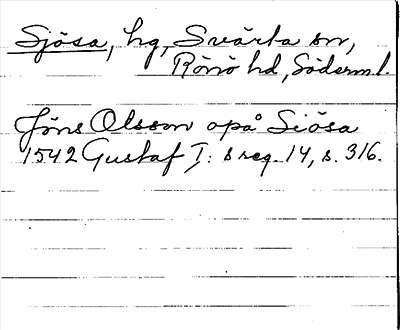 Sjösa, hg, Svärta sn,
Rönö hd, Söderml.
Jöns Olsson opå Siösa
1542 Gustaf I: s reg. 14, s. 316.